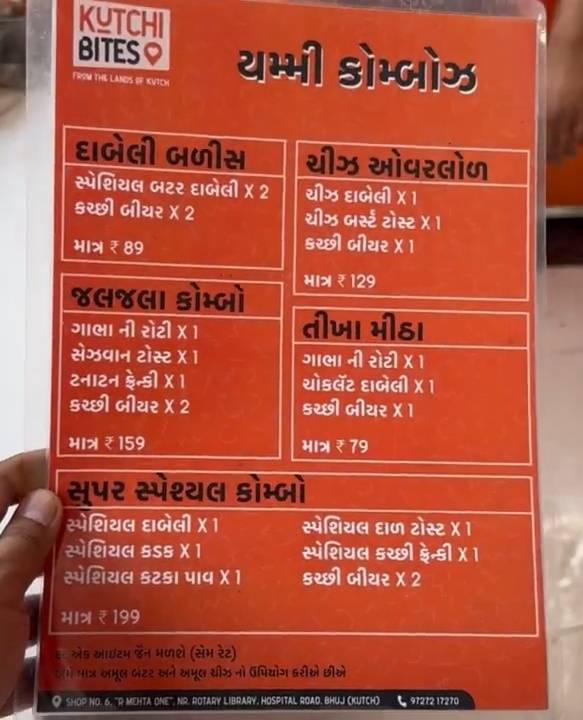 KUTCHI
BITES
FROM THE LANDS OF KUTCH
યમ્મી કોમ્બોઝ
દાબેલી બળીસ
સ્પેશિયલ બટર દાબેલી X 2
કચ્છી બીયર X 2
માત્ર ₹ 89
ચીઝ ઓવરલોળ
ચીઝ દાબેલી X 1
ચીઝ બર્સ્ટ ટોસ્ટ X 1
કચ્છી બીયર X 1
માત્ર ₹ 129
જલજલા કોમ્બો
ગાભા ની રોટી X 1
સેઝવાન ટોસ્ટ X 1
ટનાટન ફ્રેન્કી X 1
કચ્છી બીયર X 2
માત્ર ₹ 159
તીખા મીઠા
ગાભા ની રોટી X 1
ચોકલૅટ દાબેલી X 1
કચ્છી બીયર X 1
માત્ર ₹ 79
સૂપર સ્પેશ્યલ કોમ્બો
સ્પેશિયલ દાબેલી X 1
સ્પેશિયલ કડક X 1
સ્પેશિયલ કટકા પાવ X 1
સ્પેશિયલ દાળ ટોસ્ટ X 1
સ્પેશિયલ કચ્છી ફ્રેન્કી X 1
કચ્છી બીયર X 2
માત્ર ₹ 199
એક આઇટમ જૈન મળશે (સેમ રેટ)
માત્ર અમૂલ બટર અને અમૂલ ચીઝ નો ઉપિયોગ કરીએ છીએ
SHOP NO. 6, "R MEHTA ONE", NR. ROTARY LIBRARY, HOSPITAL ROAD, BHUJ (KUTCH) 97272 17270